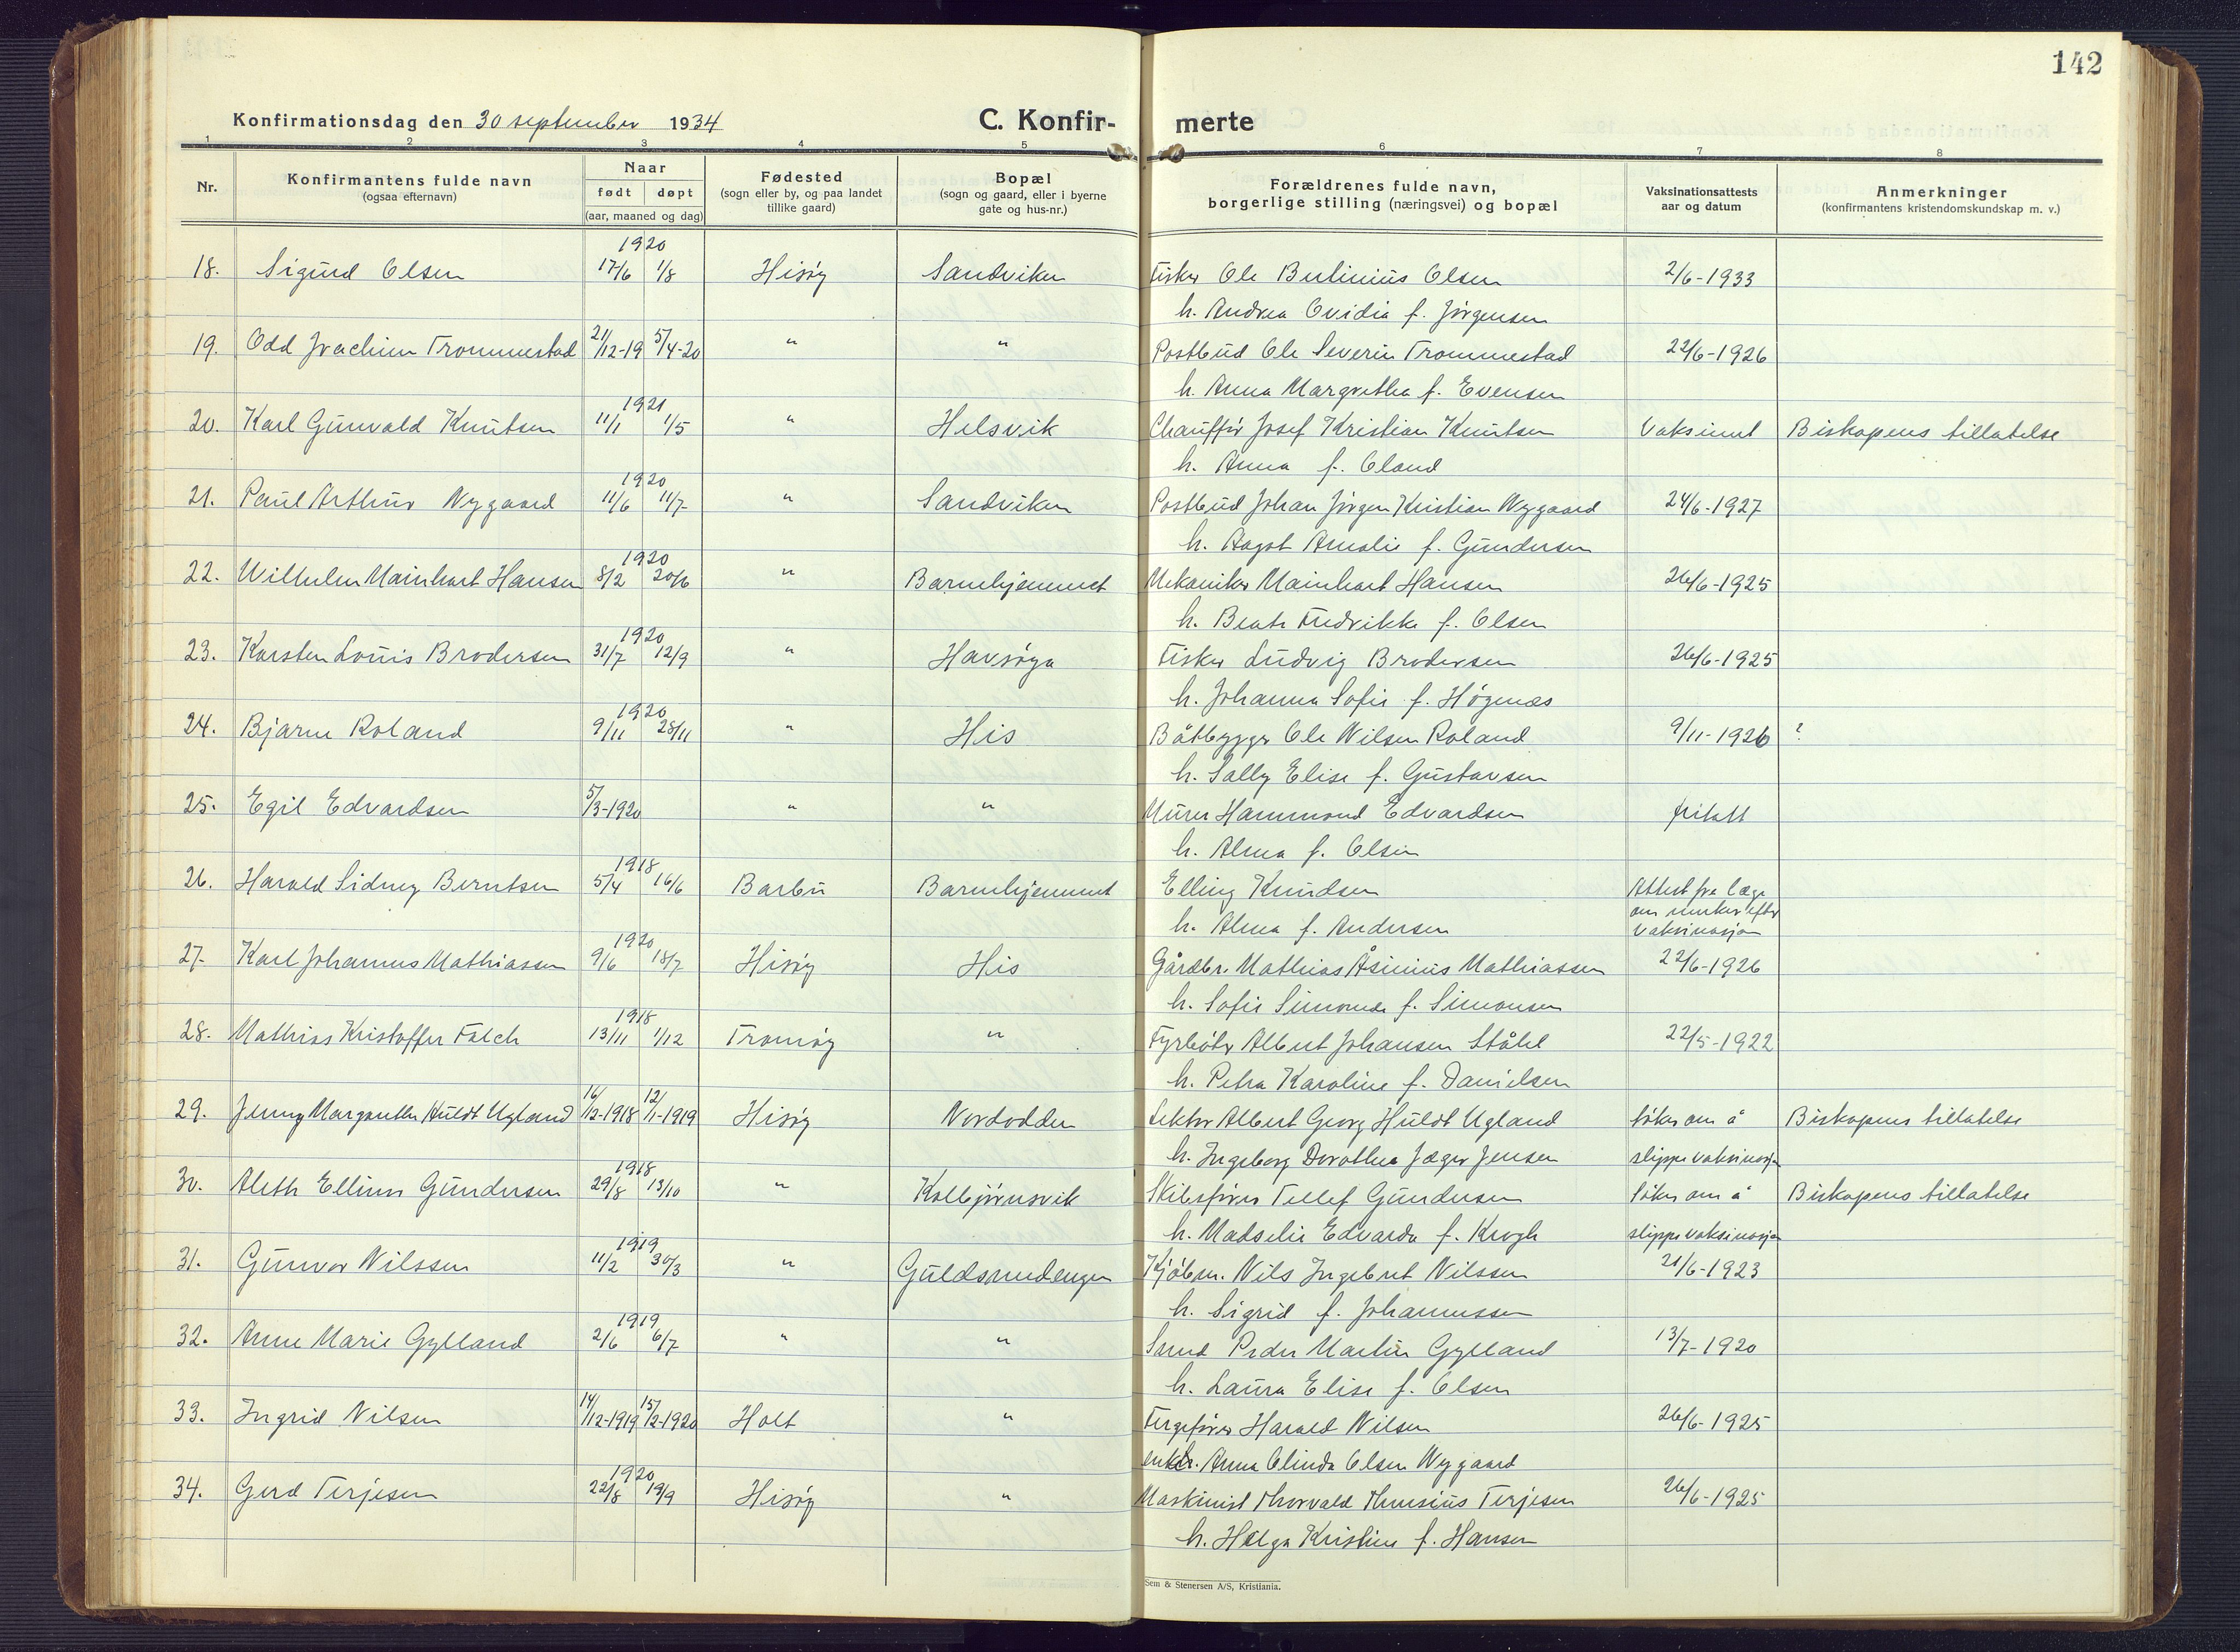 142
Konfirmationsdag den 30 september 1934
C. Konfir- merte
1 2 3 4 5 6 7 8
Nr. Konfirmantens fulde navn (ogsaa efternavn) Naar født døpt (aar, maaned og dag) Fødested (sogn eller by, og paa landet tillike gaard) Bopæl (sogn og gaard, eller i byerne gate og hus-nr.) Forældrenes fulde navn, borgerlige stilling (næringsvei) og bopæl Vaksinationsattests aar og datum Anmerkninger (konfirmantens kristendomskundskap m. v.)
1920
18. Sigurd Olsen 17/6 1/8 Hisøy Sandviken Fisker Ole Bertinius Olsen 2/6-1933
h. Andrea Ovidia f. Jörgensen
19. Odd Joachim Trommestad 21/12-19 5/4-20 " " Postbud Ole Severin Trommestad 22/6-1926
h. Anna Margretha f. Evensen
1921
20. Karl Gunvald Knutsen 11/1 1/5 " Helsvik Chauffør Josef Kristian Knutsen Vaksinert Biskopens tillatelse
h. Anna f. Oland
1920
21. Paul Arthur Nygaard 11/6 11/7 " Sandviken Postbud Johan Jörgen Kristian Nygaard 24/6-1927
h. Aagot Amalie f. Gundersen
1920
22. Wilhelm Mainhart Hansen 8/2 20/6 " Barnehjemmet Mekaniker Mainhart Hansen 26/6-1925
h. Beate Fredrikke f. Olsen
1920
23. Karsten Louis Brodersen 31/7 12/9 " Havsøya Fisker Ludvig Brodersen 26/6-1925
h. Johanna Sofie f. Högenæs
1920
24. Bjarne Roland 9/11 28/11 " His Båtbygger Ole Nilsen Roland 9/11-1926 ?
h. Sally Elise f. Gustavsen
25. Egil Edvardsen 5/3-1920 " " Murer Hammond Edvardsen fritatt
h. Alma f. Olsen
1918
26. Harald Sidney Berntsen 5/4 16/6 Barbu Barnehjemmet Elling Knudsen Attest fra læge
om merker efter
h. Alma f. Andersen vaksinasjon
1920
27. Karl Johannes Mathiassen 9/6 18/7 Hisøy His Gårdbr. Mathias Åsinius Mathiassen 22/6-1926
h. Sofie Simonne f. Simonsen
1918
28. Mathias Kristoffer Falch 13/11 1/12 Tromøy " Fyrböter Albert Johansen Ståhl 22/5-1922
h. Petra Karoline f. Danielsen
29. Jenny Margrethe Huldt Ugland 16/12-1918 12/1-1919 Hisøy Nordodden Lektor Albert Georg Huldt Ugland söker om å Biskopens tillatelse
h. Ingeborg Dorothea Jæger Jensen slippe vaksinasjon
1918
30. Aleth Ellinor Gundersen 29/8 13/10 " Kolbjörnsvik Skibsförer Tellef Gundersen söker om å Biskopens tillatelse
h. Madselie Edvarda f. Krogh slippe vaksinasjon
1919
31. Gunvor Nilssen 11/2 30/3 " Guldsmedengen Kjöbm. Nils Ingebret Nilssen 21/6-1923
h. Sigrid f. Johannessen
1919
32. Anne Marie Gylland 2/6 6/7 " " Smed Peder Martin Gylland 13/7-1920
h. Laura Elise f. Olsen
33. Ingrid Nilsen 14/12-1919 15/2-1920 Holt " Fergefører Harald Nilsen 26/6-1925
Anna Olinda Olsen Nygaard
1920
34. Gerd Terjesen 22/8 19/9 Hisøy " Maskinist Thorvald Terjesen 26/6-1925
h. Helga Kristine f. Hansen
Sem & Stenersen A/S, Kristiania.